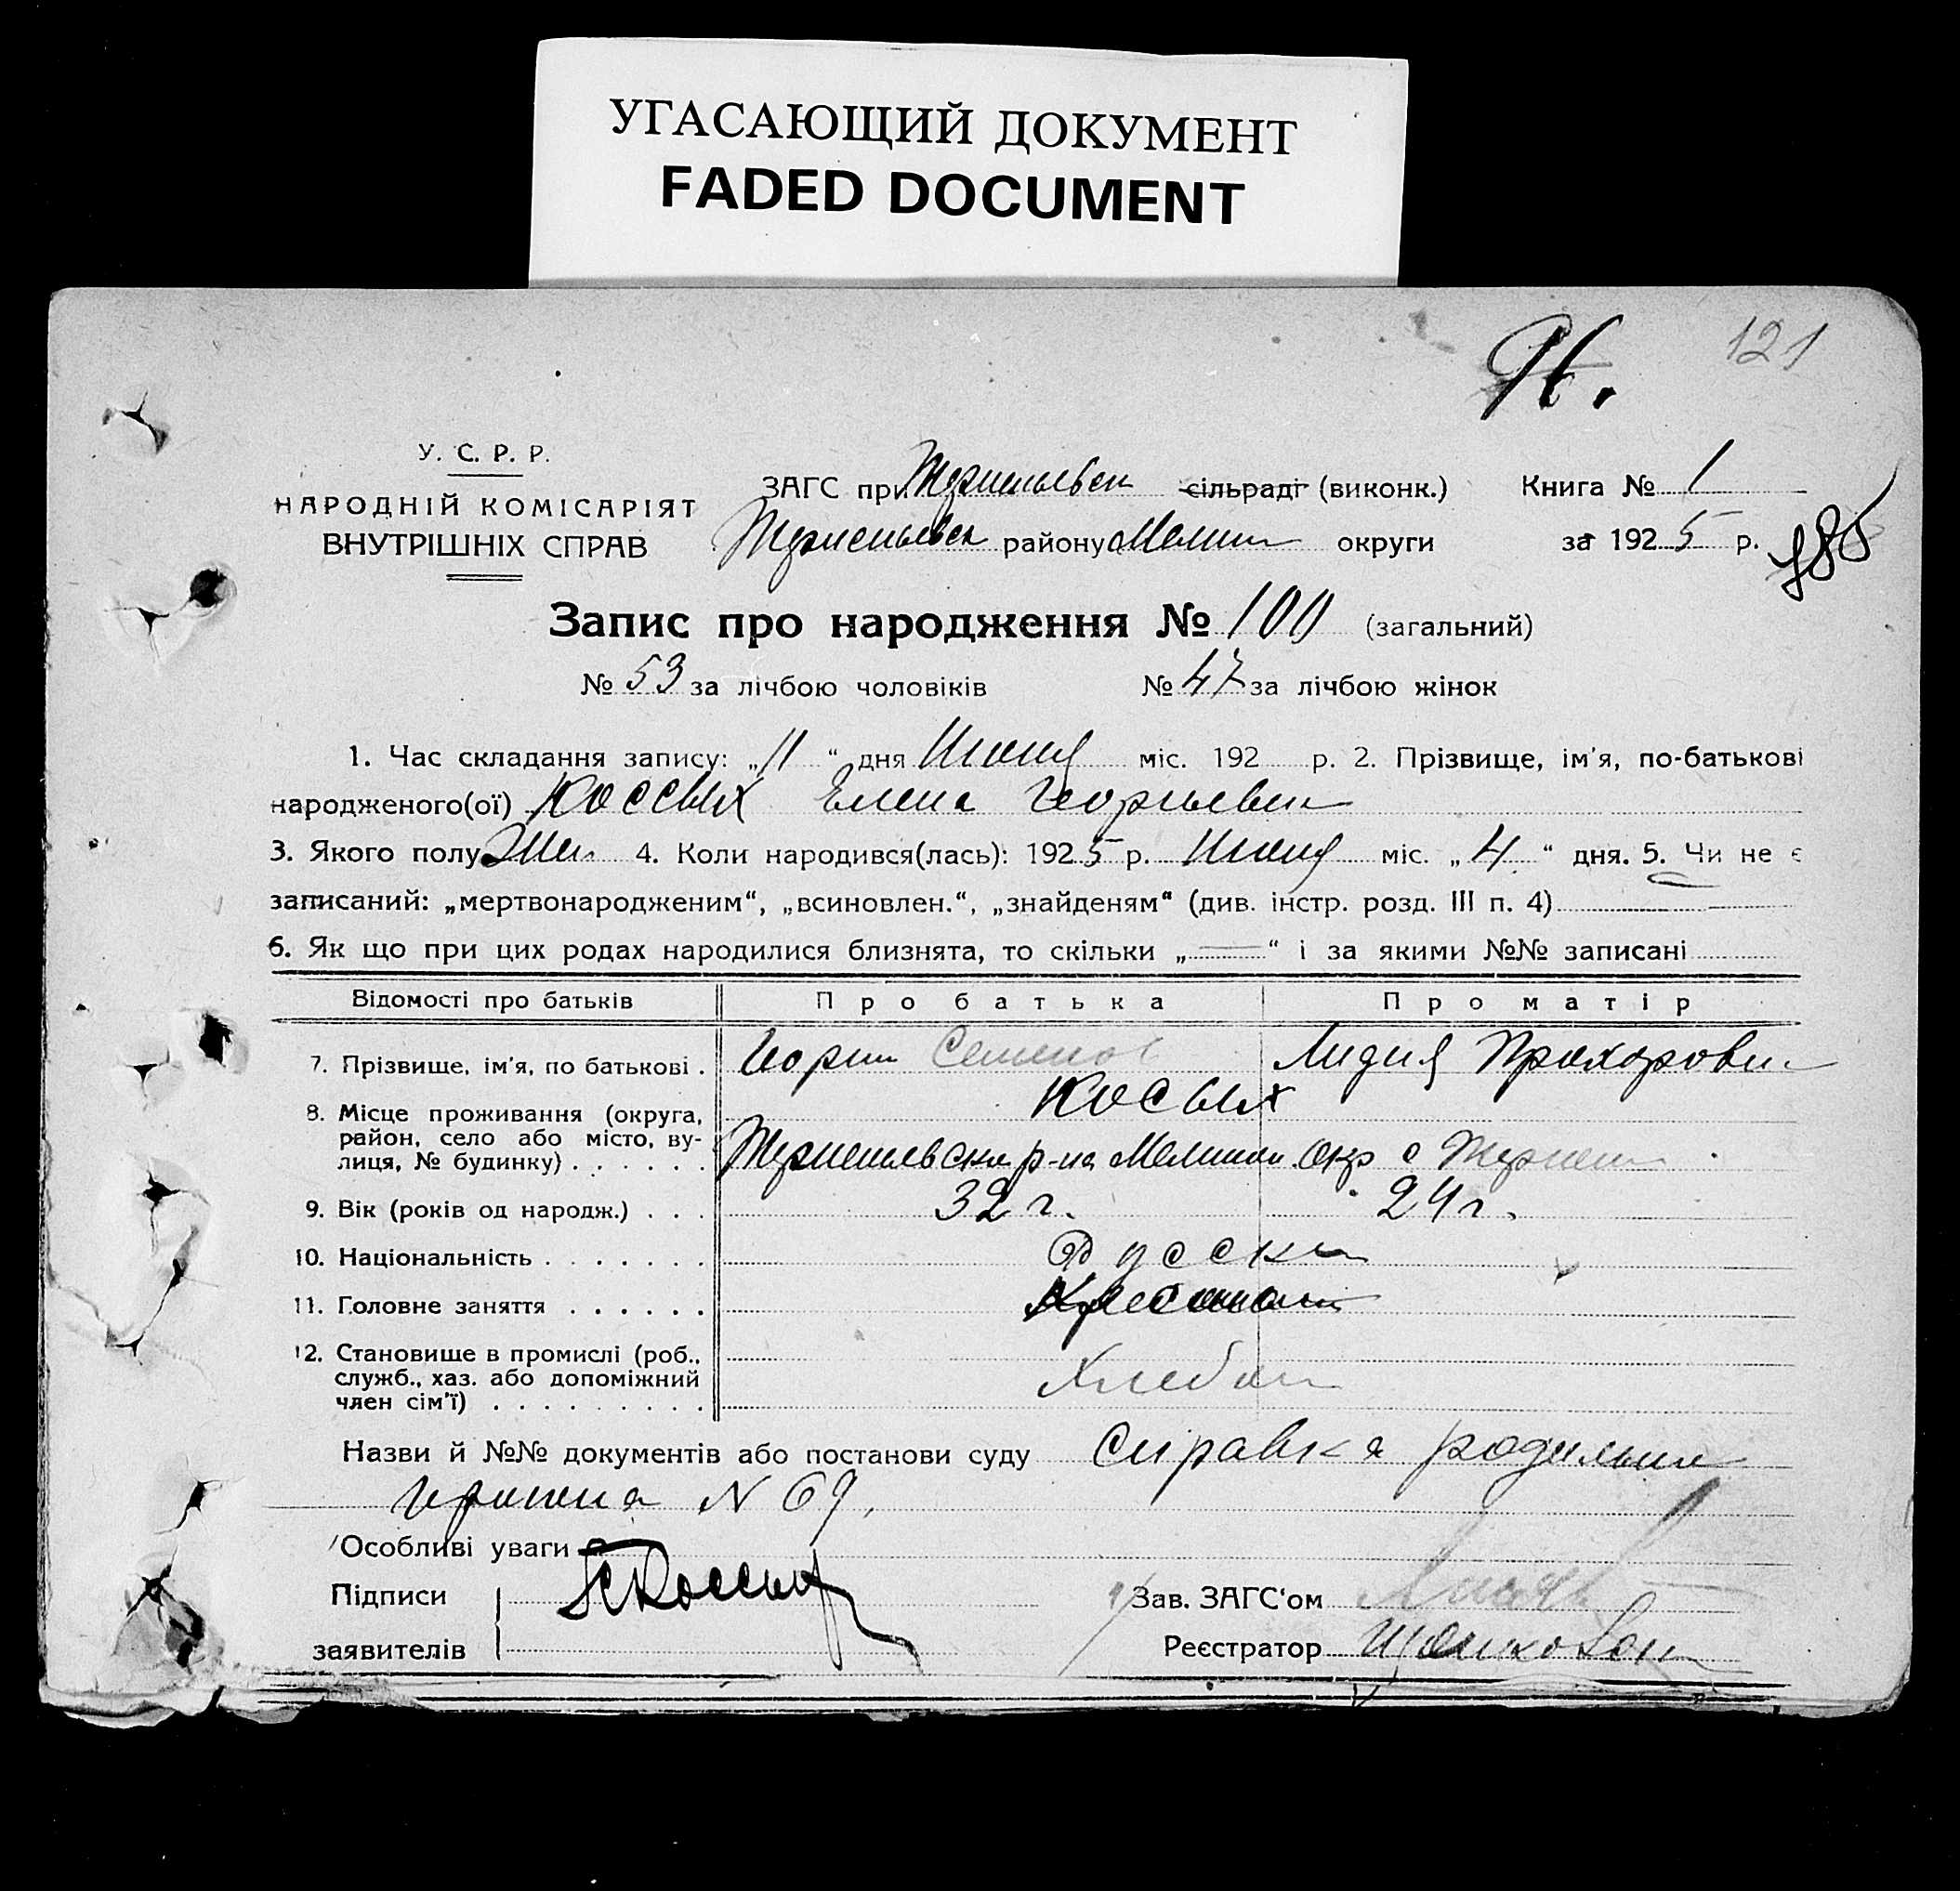 УГАСАЮЩИЙ ДОКУМЕНТ
FADED DOCUMENT
121
96.
У. С. Р. Р.
НАРОДНІЙ КОМІСАРІЯТ
ВНУТРІШНІХ СПРАВ
ЗАГС при сільраді (виконк.) Книга № 1
району Мелит округи за 1925 р.
Запис про народження № 100 (загальний)
№ 53 за лічбою чоловіків № 47 за лічбою жінок
1. Час складання запису: „11“ дня міс. 192 р. 2. Прізвище, ім'я, по-батькові
народженого(ої) Коссых Елена Георгиевна
3. Якого полу Жен. 4. Коли народився(лась): 1925 р. міс. „4“ дня. 5. Чи не є
записаний: „мертвонародженим“, „всиновлен.“, „знайденям“ (див. інстр. розд. III п. 4)
6. Як що при цих родах народилися близнята, то скільки „—“ і за якими №№ записані
Відомості про батьків Про батька Про матір
7. Прізвище, ім'я, по батькові . Семенов Лидия Прохоровн
Косых
8. Місце проживання (округа,
район, село або місто, ву-
лиця, № будинку) . . . . . . р-на окр с
9. Вік (років од народж.) . . . 32 г. 24 г.
10. Національність . . . . . . . Русск
11. Головне заняття . . . . . .
12. Становище в промислі (роб.,
служб., хаз. або допоміжний
член сім'ї) . . . . . . . . . Хлебоп
Назви й №№ документів або постанови суду Справка родильн
N 69.
Особливі уваги
Підписи Зав. ЗАГС'ом
заявителів Реєстратор